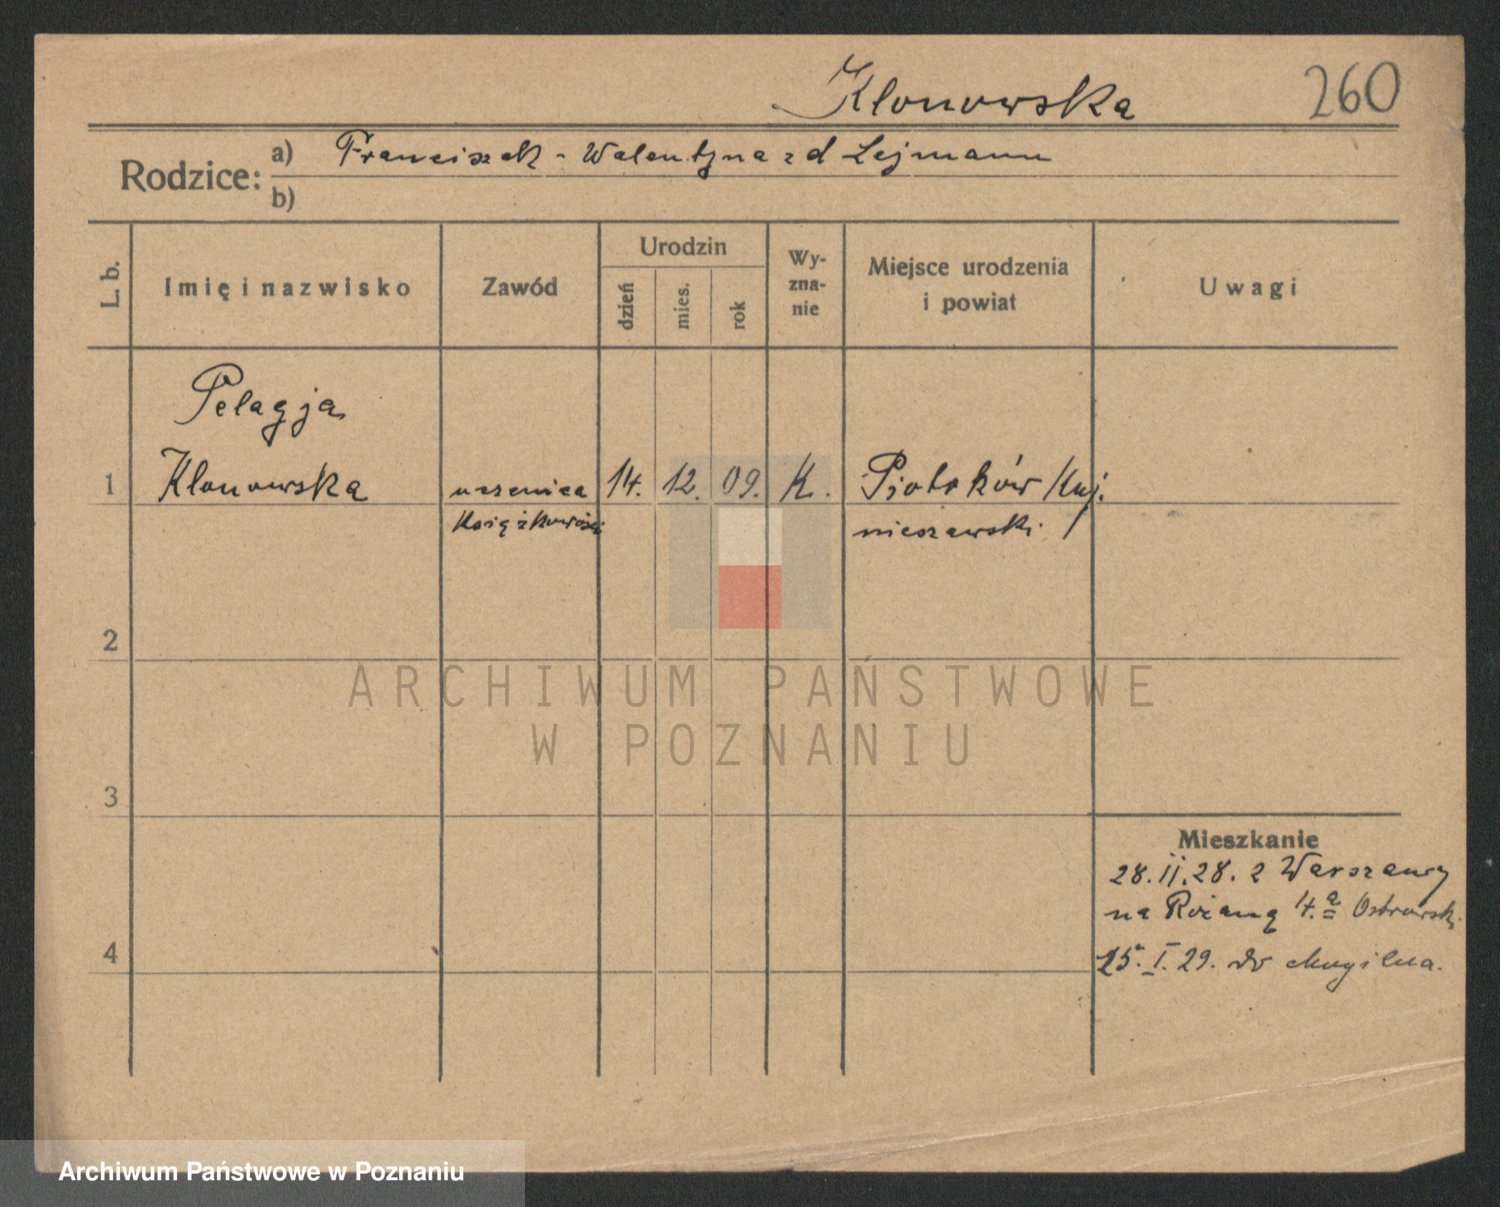 Klonowska
260
Rodzice:
a) Franciszek - Walentyna z d Lejmann
b)
L. b.
Imię i nazwisko
Zawód
Urodzin
dzień
mies.
rok
Wy-
zna-
nie
Miejsce urodzenia
i powiat
Uwagi
Pelagja
1 Klonowska uczenica 14. 12. 09. K. Piotrków Kuj.
Książkowości nieszawski
2
ARCHIWUM PAŃSTWOWE
W POZNANIU
3
Mieszkanie
28.II.28. z Warszawy
na Różaną 4.a Ostrowsk.
4
15. I. 29. do Mogilna.
Archiwum Państwowe w Poznaniu